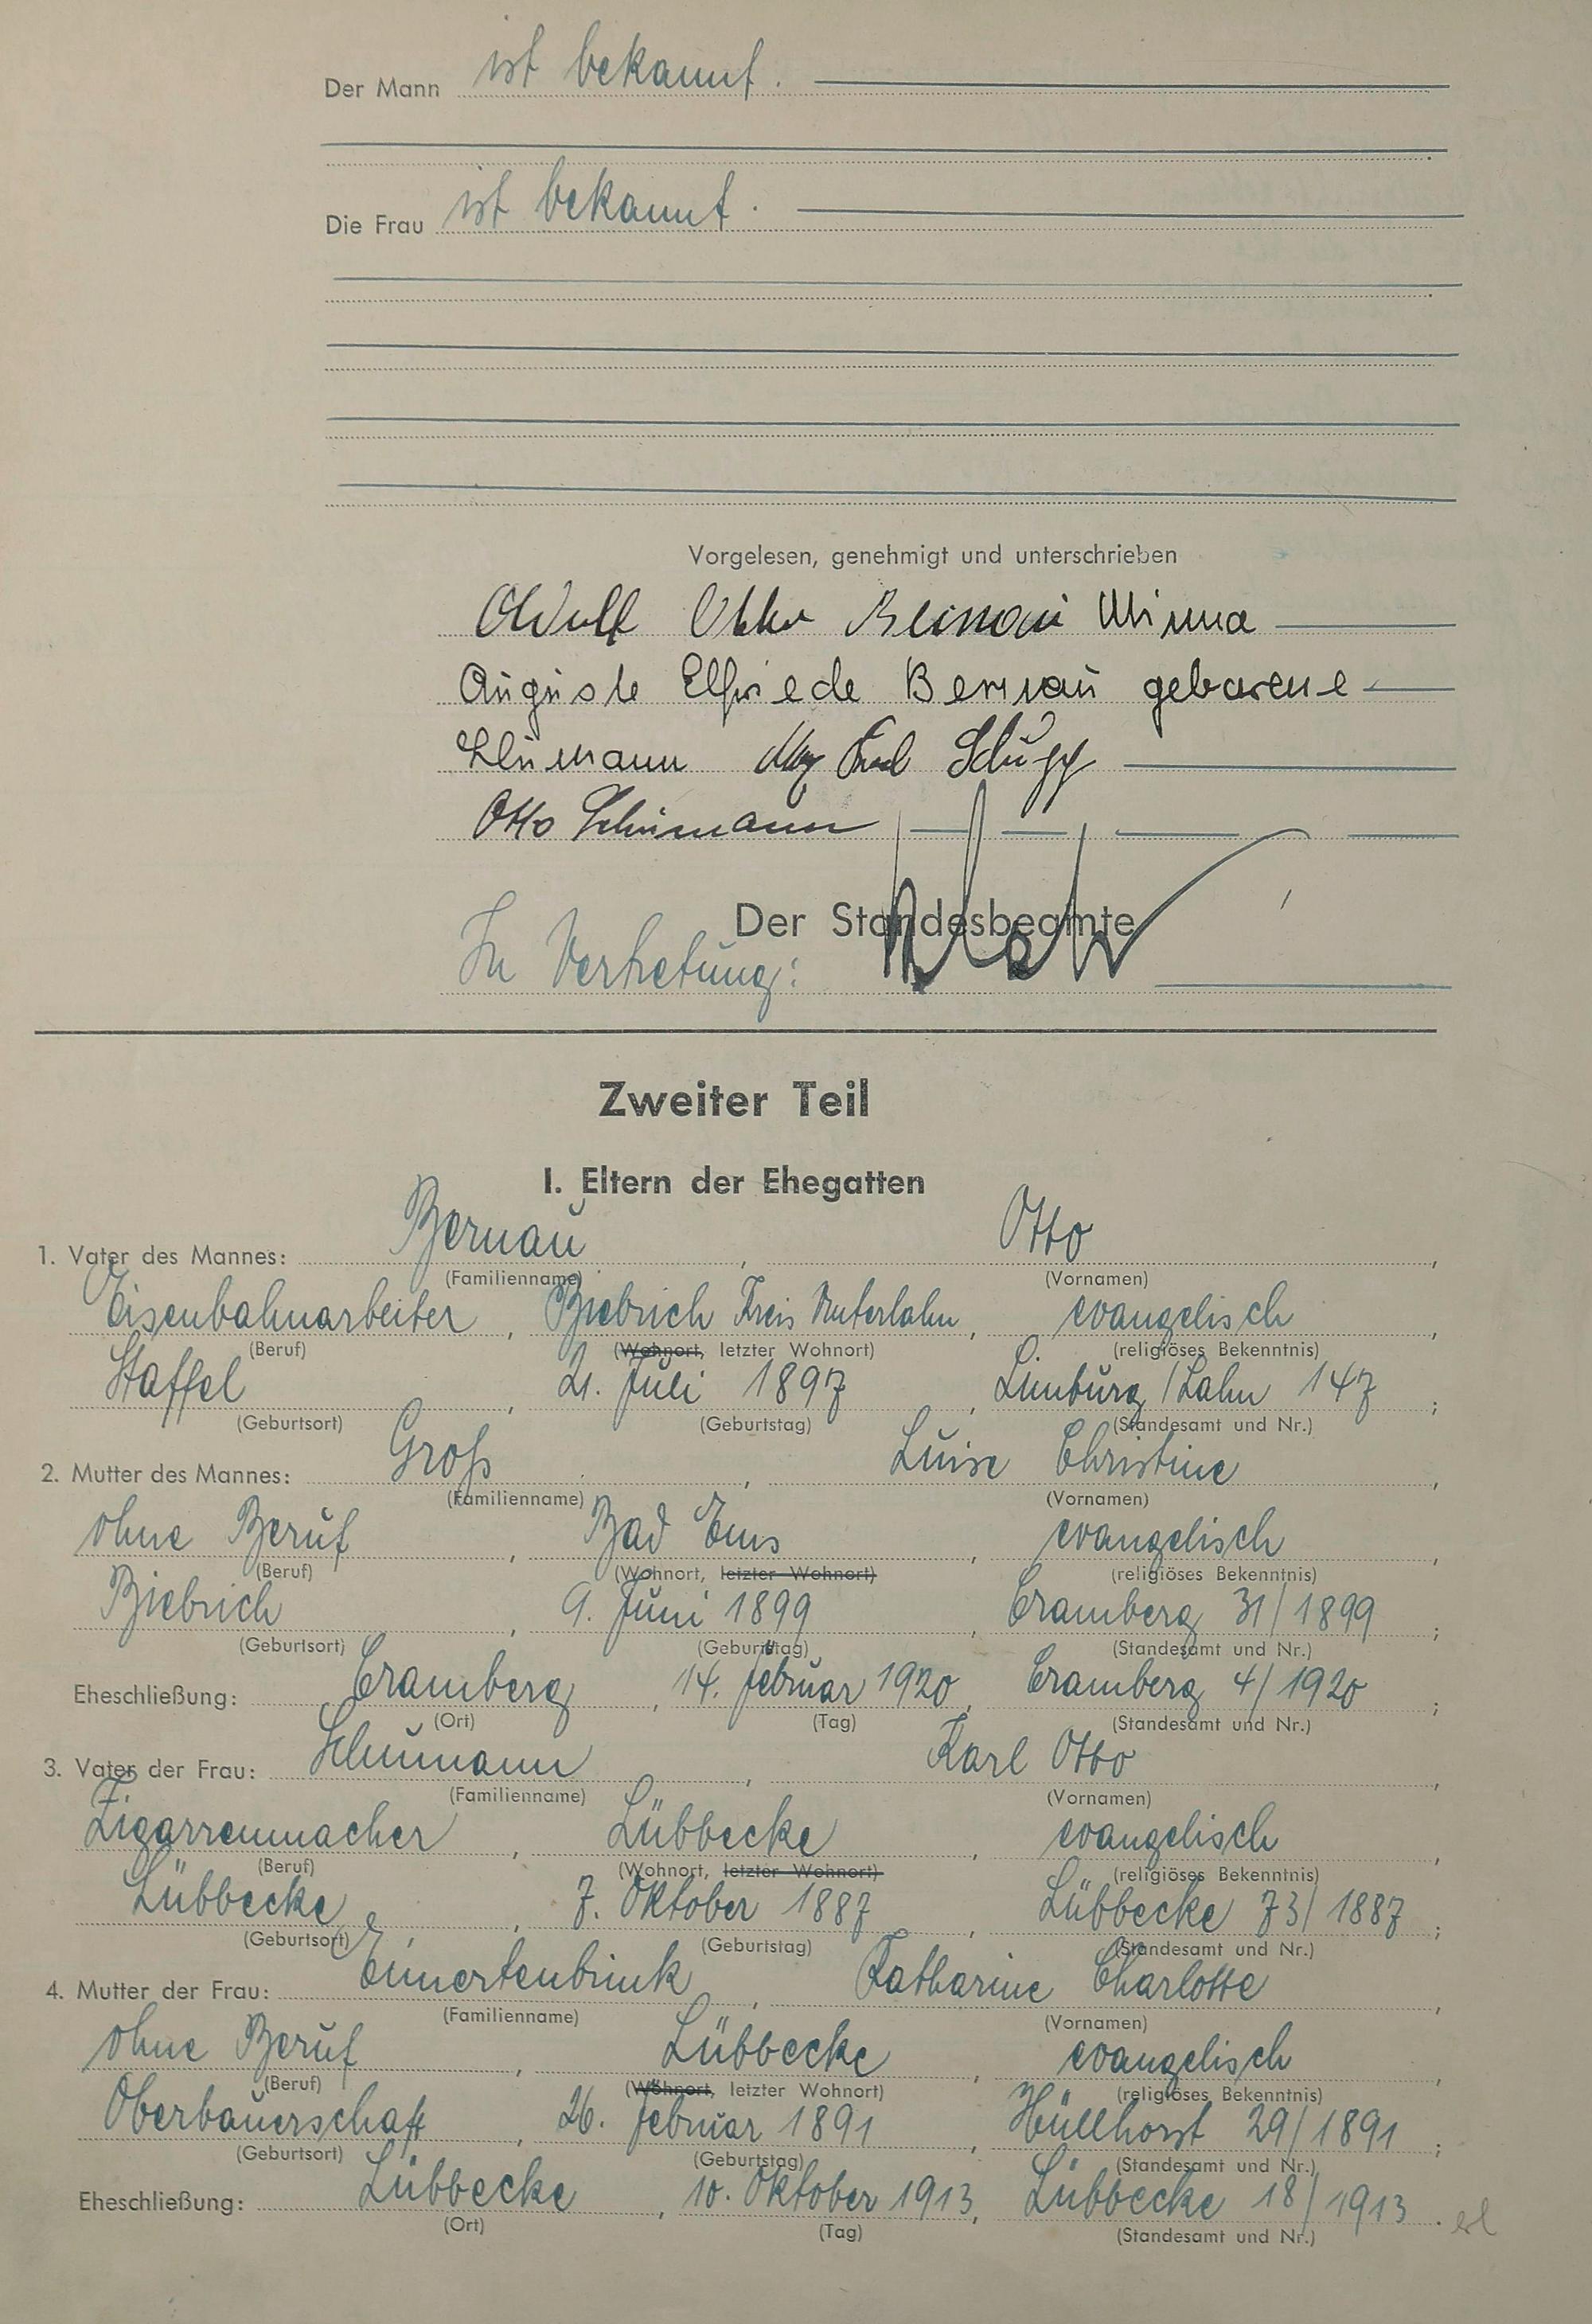 Der Mann ist bekannt.
Die Frau ist bekannt.
Vorgelesen, genehmigt und unterschrieben
Adolf Otto Bernau Minna
Auguste Elfriede Bernau geborene
Schumann Karl
Otto Schumann
Der Standesbeamte
In Vertretung:
Zweiter Teil
I. Eltern der Ehegatten
1. Vater des Mannes: Bernau, Otto,
(Familienname) (Vornamen)
Eisenbahnarbeiter, Biebrich Kreis Unterlahn, evangelisch,
(Beruf) (Wohnort, letzter Wohnort) (religiöses Bekenntnis)
Staffel, 21. Juli 1897, Limburg/Lahn 147;
(Geburtsort) (Geburtstag) (Standesamt und Nr.)
2. Mutter des Mannes: Groß, Luise Christine,
(Familienname) (Vornamen)
ohne Beruf, Bad Ems, evangelisch,
(Beruf) (Wohnort, letzter Wohnort) (religiöses Bekenntnis)
Biebrich, 9. Juni 1899, Cramberg 31/1899;
(Geburtsort) (Geburtstag) (Standesamt und Nr.)
Eheschließung: Cramberg, 14. Februar 1920, Cramberg 4/1920;
(Ort) (Tag) (Standesamt und Nr.)
3. Vater der Frau: Schumann, Karl Otto,
(Familienname) (Vornamen)
Zigarrenmacher, Lübbecke, evangelisch,
(Beruf) (Wohnort, letzter Wohnort) (religiöses Bekenntnis)
Lübbecke, 7. Oktober 1887, Lübbecke 73/1887;
(Geburtsort) (Geburtstag) (Standesamt und Nr.)
4. Mutter der Frau: Ennertenbrink, Katharine Charlotte,
(Familienname) (Vornamen)
ohne Beruf, Lübbecke, evangelisch,
(Beruf) (Wohnort, letzter Wohnort) (religiöses Bekenntnis)
Oberbauerschaft, 26. Februar 1891, Hüllhorst 29/1891;
(Geburtsort) (Geburtstag) (Standesamt und Nr.)
Eheschließung: Lübbecke, 10. Oktober 1913, Lübbecke 18/1913.
(Ort) (Tag) (Standesamt und Nr.)